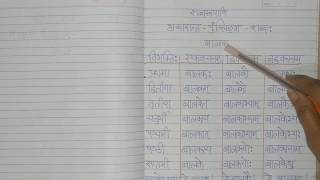 शब्दरूपाणि
अकारान्त - पुँल्लिङ्ग - शब्दः
बालक
विभक्तिः एकवचनम् द्विवचनम् बहुवचनम्
प्रथमा बालकः बालकौ
द्वितीया बालकम् बालकौ
तृतीया बालकेन
चतुर्थी बालकाय बालकाभ्याम् बालकेभ्यः
पञ्चमी बालकात् बालकाभ्याम् बालकेभ्यः
षष्ठी बालकस्य बालकयोः बालकानाम्
सप्तमी बालके बालकयोः बालकेषु